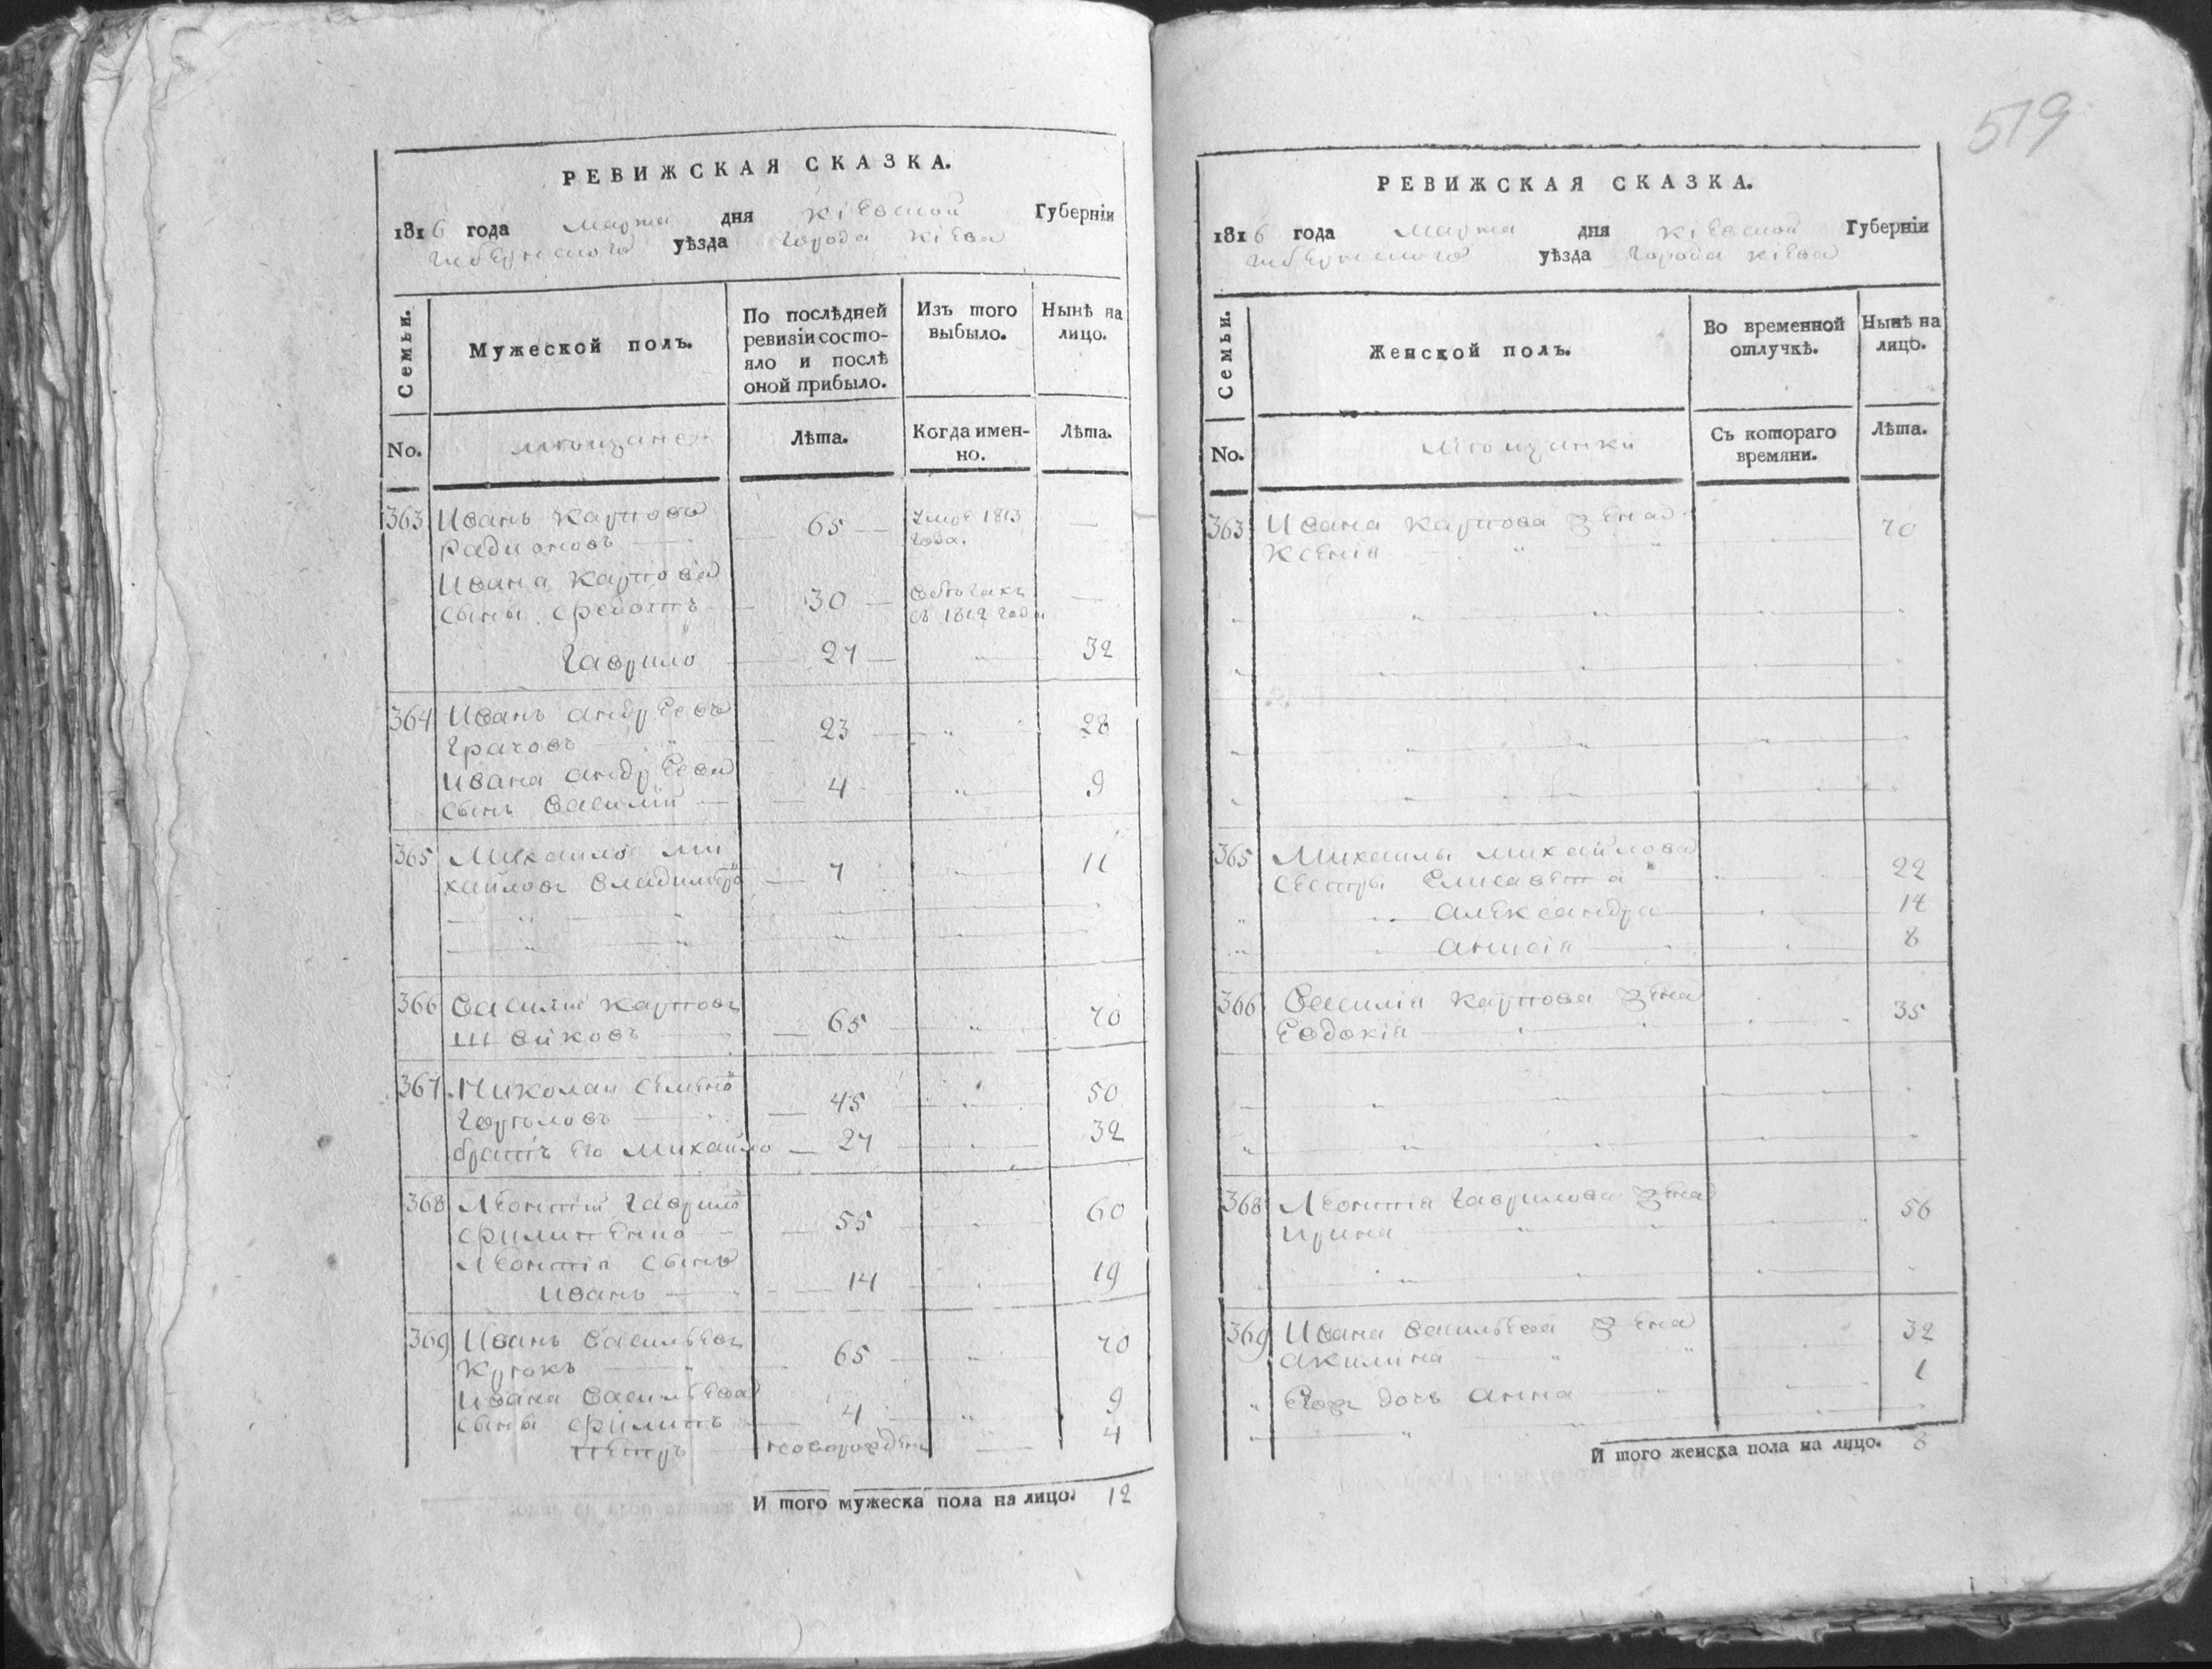 519
РЕВИЖСКАЯ СКАЗКА.
1816 года марта дня Кіевской Губерніи
губернского уѣзда города Кіева
Семьи.
Мужеской полъ.
По послѣдней
ревизіи состо-
яло и послѣ
оной прибыло.
Изъ того
выбыло.
Нынѣ на
лицо.
No.
мѣщане
Лѣта.
Когда имен-
но.
Лѣта.
363 Иванъ Карповъ
Радионовъ 65 умре 1813
года.
Ивана Карпова
сыны Федотъ 30 въ бѣгахъ
съ 1812 года
Гаврило 27 32
364 Иванъ Андреевъ
Грачовъ 23 28
Ивана Андреева
сынъ Василій 4 9
365 Михайло Ми
хайловъ 7 11
366 Василій Карповъ
Швайковъ 65 70
367 Николай Семено
45 50
братъ его Михайло 27 32
368 Леонтій Гаврило
Филипенко 55 60
Леонтія сынъ
Иванъ 14 19
369 Иванъ Васильевъ
65 70
Ивана Васильева
сыны Филипъ 4 9
Петръ новорожденъ 4
И того мужеска пола на лицо. 12
РЕВИЖСКАЯ СКАЗКА.
1816 года марта дня Кіевской Губерніи
губернского уѣзда города Кіева
Семьи.
Женской полъ.
Во временной
отлучкѣ.
Нынѣ на
лицо.
No.
мѣщанки
Съ котораго
времяни.
Лѣта.
363 Ивана Карпова жена
Ксенія 70
365 Михайлы Михайлова
сестры Елисавета 22
Александра 14
Анисія 8
366 Василія Карпова жена
Евдокія 35
368 Леонтія Гаврилова жена
Ирина 56
369 Ивана Васильева жена
Акилина 32
дочь Анна 1
И того женска пола на лицо. 8